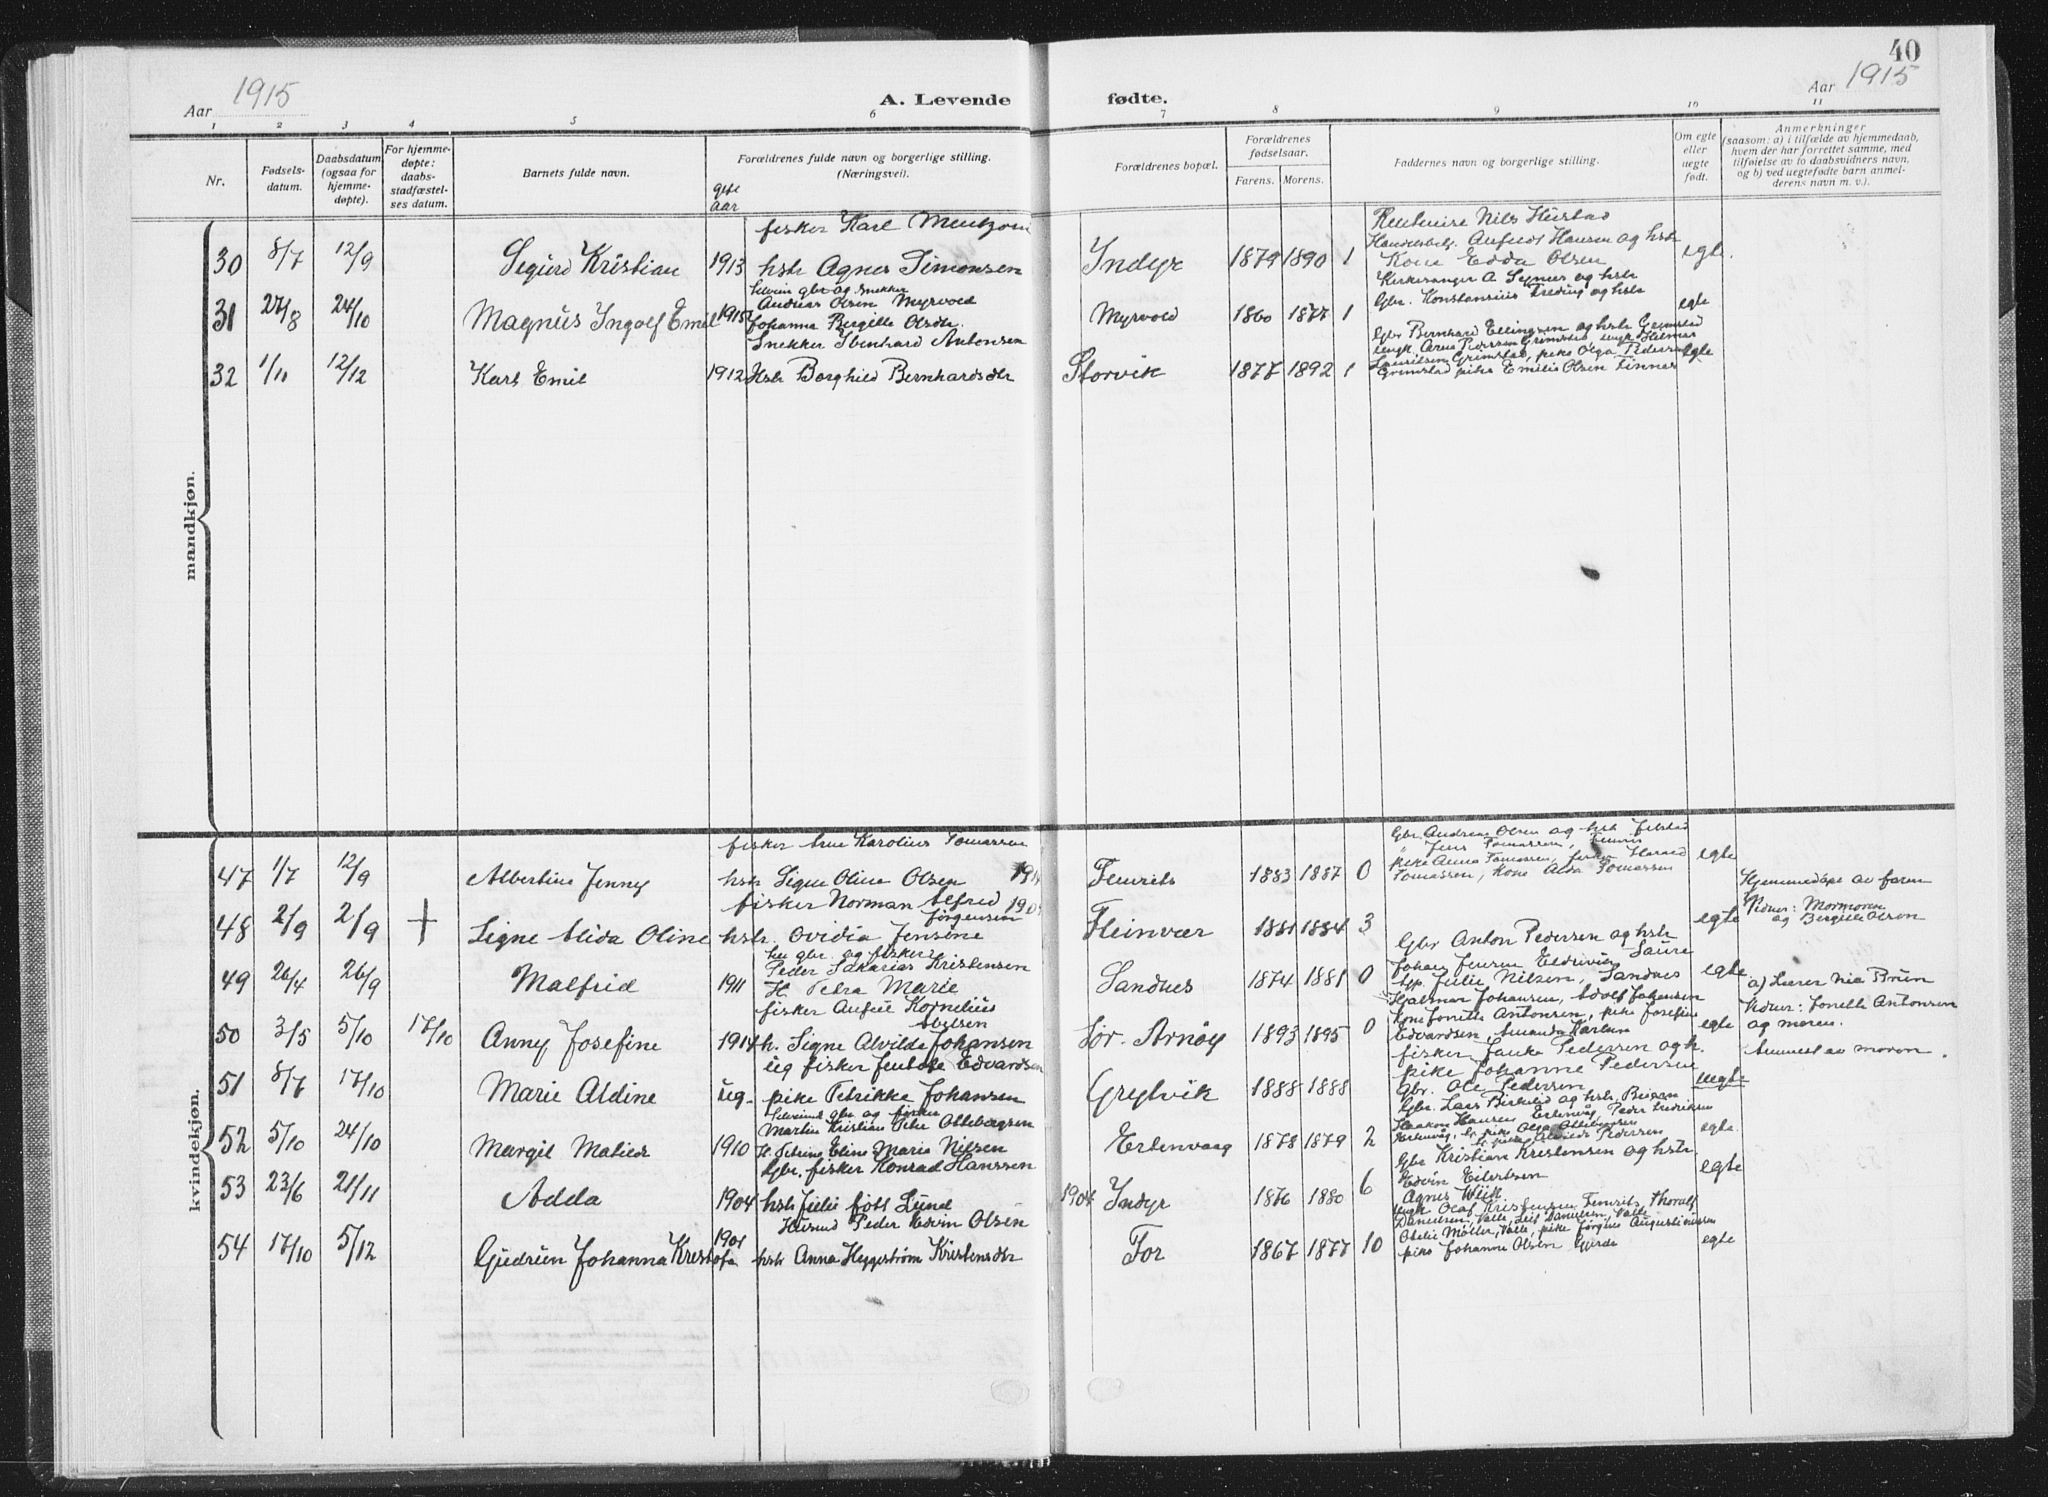 40
Aar 1915
A. Levende
fødte.
Aar 1915
1 2 3 4 5 6 7 8 9 10 11
Nr.
Fødsels-
datum.
Daabsdatum
(ogsaa for
hjemme-
døpte).
For hjemme-
døpte:
daabs-
stadfæstel-
ses datum.
Barnets fulde navn.
gift
aar
Forældrenes fulde navn og borgerlige stilling.
(Næringsvei).
Forældrenes bopæl.
Forældrenes
fødselsaar.
Farens. Morens.
Faddernes navn og borgerlige stilling.
Om egte
eller
uegte
født.
Anmerkninger
(saasom: a) i tilfælde av hjemmedaab,
hvem der har forrettet samme, med
tilføielse av to daabsvidners navn,
og b) ved uegtefødte barn anmel-
derens navn m. v.).
mandkjøn.
fisker Karl Mentzoni
30 8/7 12/9 Sigurd Kristian 1913 hstr Agnes Simonsen Indyr 1879 1890 1
Nils Hustad
Hansen og hstr
Kone Edda Olsen egte.
Kirkesanger A og hstr
Gbr. og hstr
selveier gbr og snekker
Andreas Olsen Myrvold
31 27/8 24/10 Magnus Ingolf Emil 1915 Johanna Bergitte Olsdtr. Myrvold 1860 1877 1 egte
Snekker Edvard Antonsen
32 1/11 12/12 Karl Emil 1912 Hstr Borghild Bernhardsdtr Storvik 1877 1892 1
Gbr Bernhard Ellingsen og hstr Grimstad
Grimstad, ungk Hilmar
Lauritsen Grimstad, pike Olga Pedersen egte
Grimstad pike Emilie Olsen Finnes
kvindekjøn.
fisker Arne Karolius Tomassen
47 1/7 12/9 Albertine Jenny hstr Signe Oline Olsen Femris 1883 1887 0
Gbr. Andreas Olsen og hstr
Jens Tomassen, Femris
pike Anna Tomassen, Harald egte
Tomassen, Kone Alda Tomassen
fisker Norman Alfred
Jørgensen
48 2/9 2/9 + Signe Alida Oline hstr. Ovidia Jensine Fleinvær 1881 1884 3 egte
Hjemmedøpt av faren
Vidner: Mormoren
og Bergitte Olsen
gbr. og fisker
Peder Sakarias Kristensen
49 26/4 26/9 Malfrid 1911 H Petra Marie Sandnes 1874 1881 0
Gbr Anton Pedersen og hstr
Julie Nilsen, Sandnes egte
Hjalmar Johansen, Adolf Johansen
fisker Kornelius
50 3/5 5/10 17/10 Anny Josefine 1914 h. Signe Alvilda Johansen Sør. Arnøy 1893 1895 0
Kone Jonette Antonsen, pike Josefine
Edvardsen, Karlsen egte
a) Lærer
Vidner: Jonette Antonsen
og moren.
ug fisker Edvardsen
51 8/7 17/10 Marie Aldine ug. pike Petrikke Johansen Grytvik 1888 1888
fisker Pedersen og h.
pike Johanne Pedersen
Gbr. Ole Pedersen uegte
Anmeldt av moren.
Selveiend gbr og fisker
Martin Kristian Peter Ottebergsen
52 5/10 24/10 Margit Matilde 1910 H. Petrine Eline Marie Nilsen Ertenvaag 1878 1879 2
Gbr. Lars og hstr
Haakon Hansen Ertenvåg, Peder Fredriksen
pike Olga egte.
pike Pedersen
Gbr. fisker Konrad Hanssen
53 23/6 21/11 Adda 1904 hstr Julie født Lund 1904 Indyr 1876 1880 6
Gbr Kristian Kristensen og hstr.
Edvin Eilertsen egte
Agnes Wiik
Husmd Peder Edvin Olsen
54 17/10 5/12 Gudrun Johanna Kristofa 1901 hstr Anna Heggestrøm Kristensdtr For 1867 1877 10
ungk Olaf Kristensen Femris, Thoralf
Danielsen, Valle, Leif Danielsen, Valle
Otelie Møller, Valle, pike Jørgine Augustinussen
pike Johanne Olsen Gjerde egte